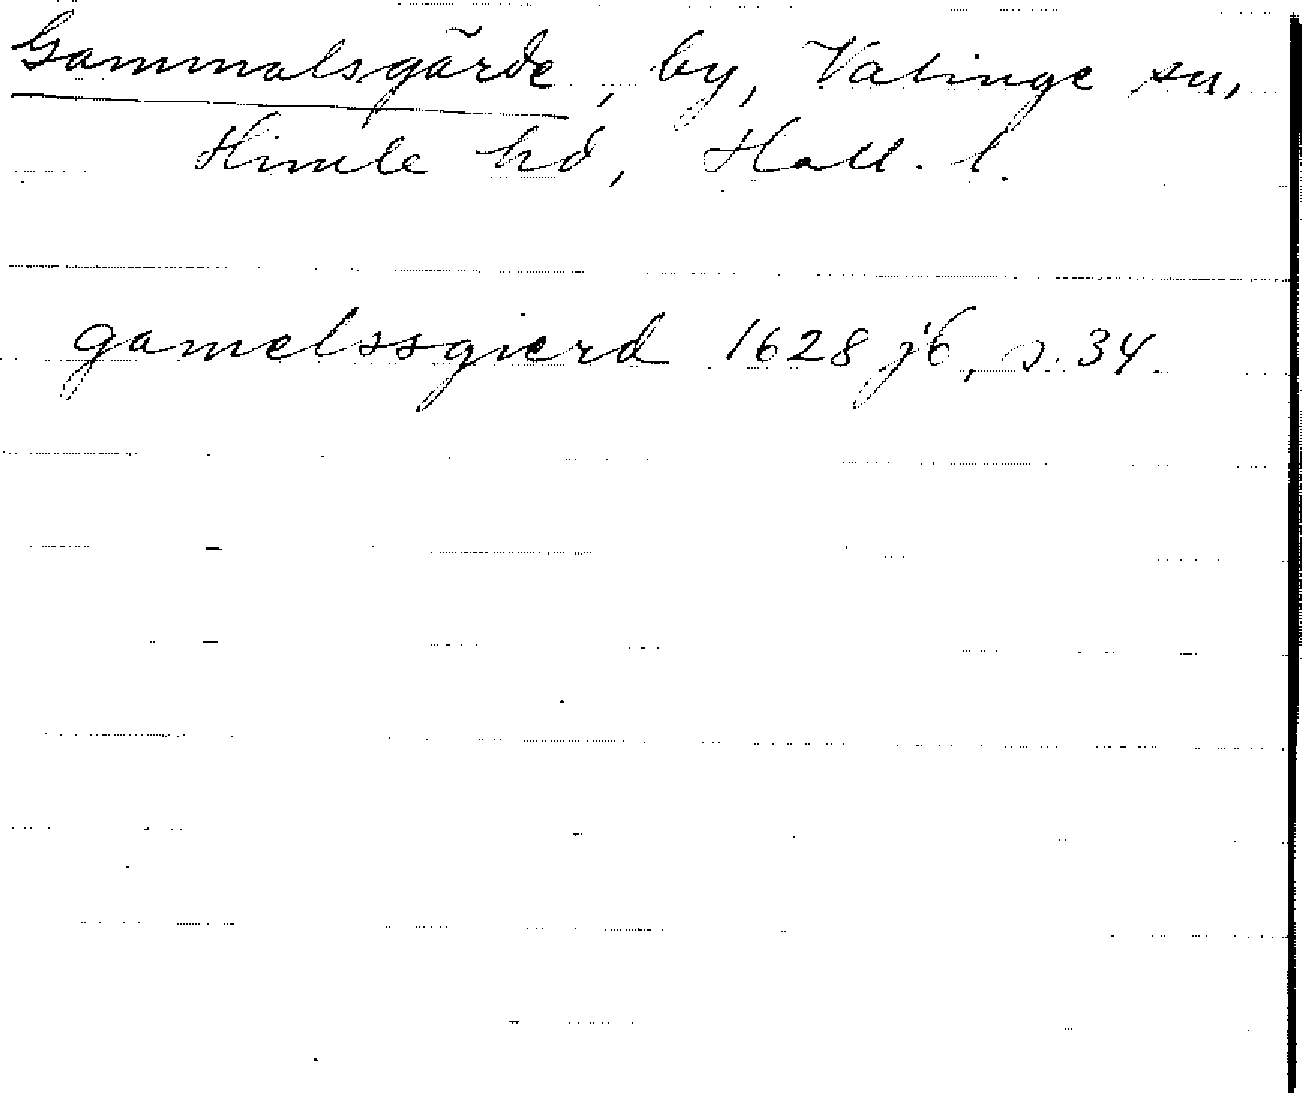 Gammalsgärde, by, Valinge sn,
Himle hd, Hall. l.
gamelssgierd 1628 jb, s. 34.